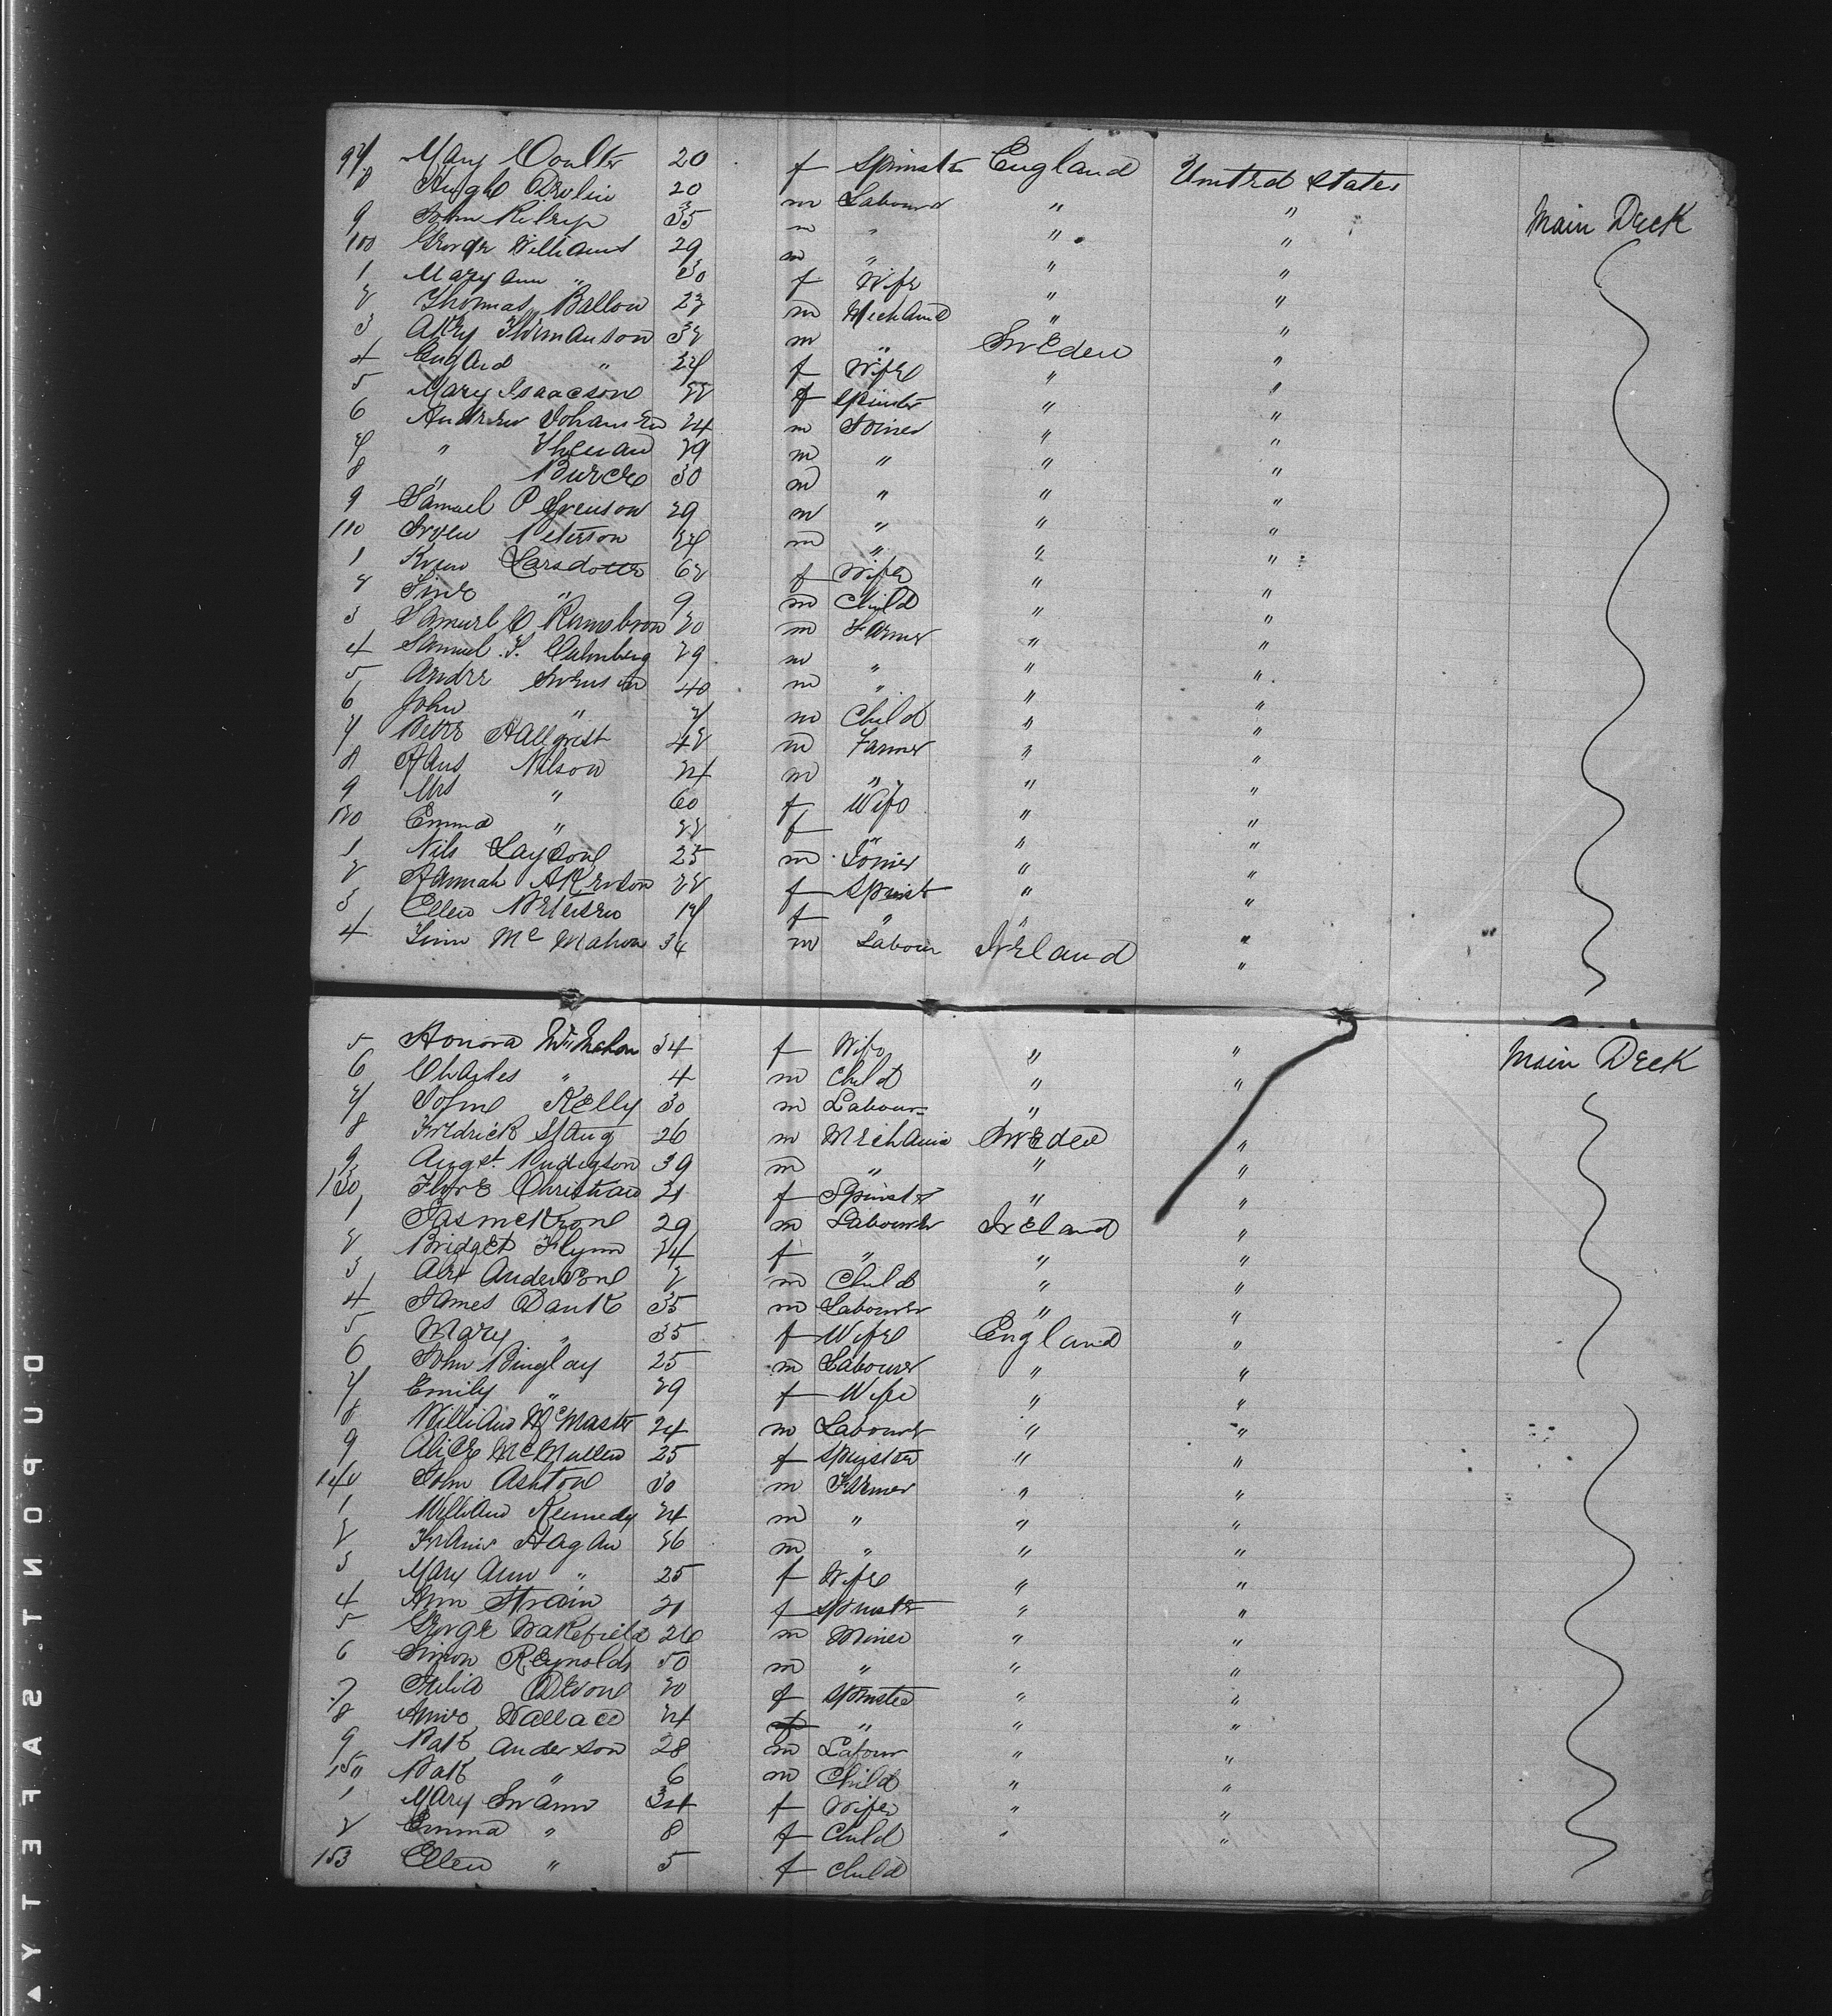 97 Mary Coulter 20 f Spinster England United States
8 Hugh Devlin 20 m Labourer " " Main Deck
9 John Kilrip 35 m " " "
100 George Williams 29 m " " "
1 Mary Ann " 30 f Wife " "
2 Thomas Ballow 22 m Mechanic " "
3 Thomanson 32 m " Sweden "
4 " 27 f Wife " "
5 Mary Isaacson 22 f Spinster " "
6 Andrew Johansen 24 m Joiner " "
7 " 29 m " " "
8 " 30 m " " "
9 Samuel P Svenson 29 m " " "
110 Peterson 27 m " " "
1 Larsdotter 62 f Wife " "
2 " 9 m Child " "
3 Samuel C 20 m Farmer " "
4 Samuel S. 29 m " " "
5 Andre Svenson 40 m " " "
6 John " 7 m Child " "
7 Petre Hallqvist 42 m Farmer " "
8 Hans Nilson 24 m " " "
9 Mrs " 60 f Wife " "
120 Emma " 22 f " " "
1 Nils 25 m Joiner " "
2 Hannah Akerson 22 f Spinst " "
3 Ellen Petersen 17 f " " "
4 Mc Mahon 34 m Labour Ireland "
5 Honora McMahon 34 f Wife " " Main Deck
6 Charles " 4 m Child " "
7 John Kelly 30 m Labour "
8 Fredrick 26 m Mechanic Sweden "
9 Augst. 39 m " " "
130 Christian 21 f Spinster " "
1 Jas McKeone 29 m Labourer Ireland "
2 Bridget Flynn 24 f " " "
3 Alex Anderson 2 m Child " "
4 James Dank 35 m Labourer " "
5 Mary " 35 f Wife England "
6 John Binglay 25 m Labourer " "
7 Emily " 29 f Wife " "
8 William McMaster 24 m Labourer " "
9 Alice McMullen 25 f Spinster " "
140 John Ashton 30 m Farmer " "
1 William Kennedy 24 m " " "
2 Francis Hagan 26 m " " "
3 Mary Ann " 25 f Wife " "
4 Ann Strain 21 f Spinster " "
5 George Wakefield 26 m Miner " "
6 Simon Reynolds 50 m " " "
7 Julia Devone 20 f Spinster " "
8 Annie Wallace 24 f " " "
9 Patk Anderson 28 m Labour " "
150 Patk " 6 m Child " "
1 Mary Swann 34 f Wife " "
2 Emma " 8 f Child " "
153 Ellen " 5 f Child
DUPONT SAFETY